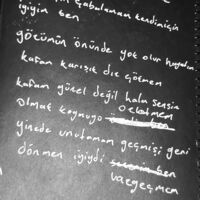 çabalamam kendimiçin
iyiyim ben
gözümün önünde yok olun hayatım
kafam karışık diz çökmem
kafam güzel değil hala sensin
olmaz koynuyo
yinede unutamam geçmişi geri
dönmem iyiydi
vazgeçmem